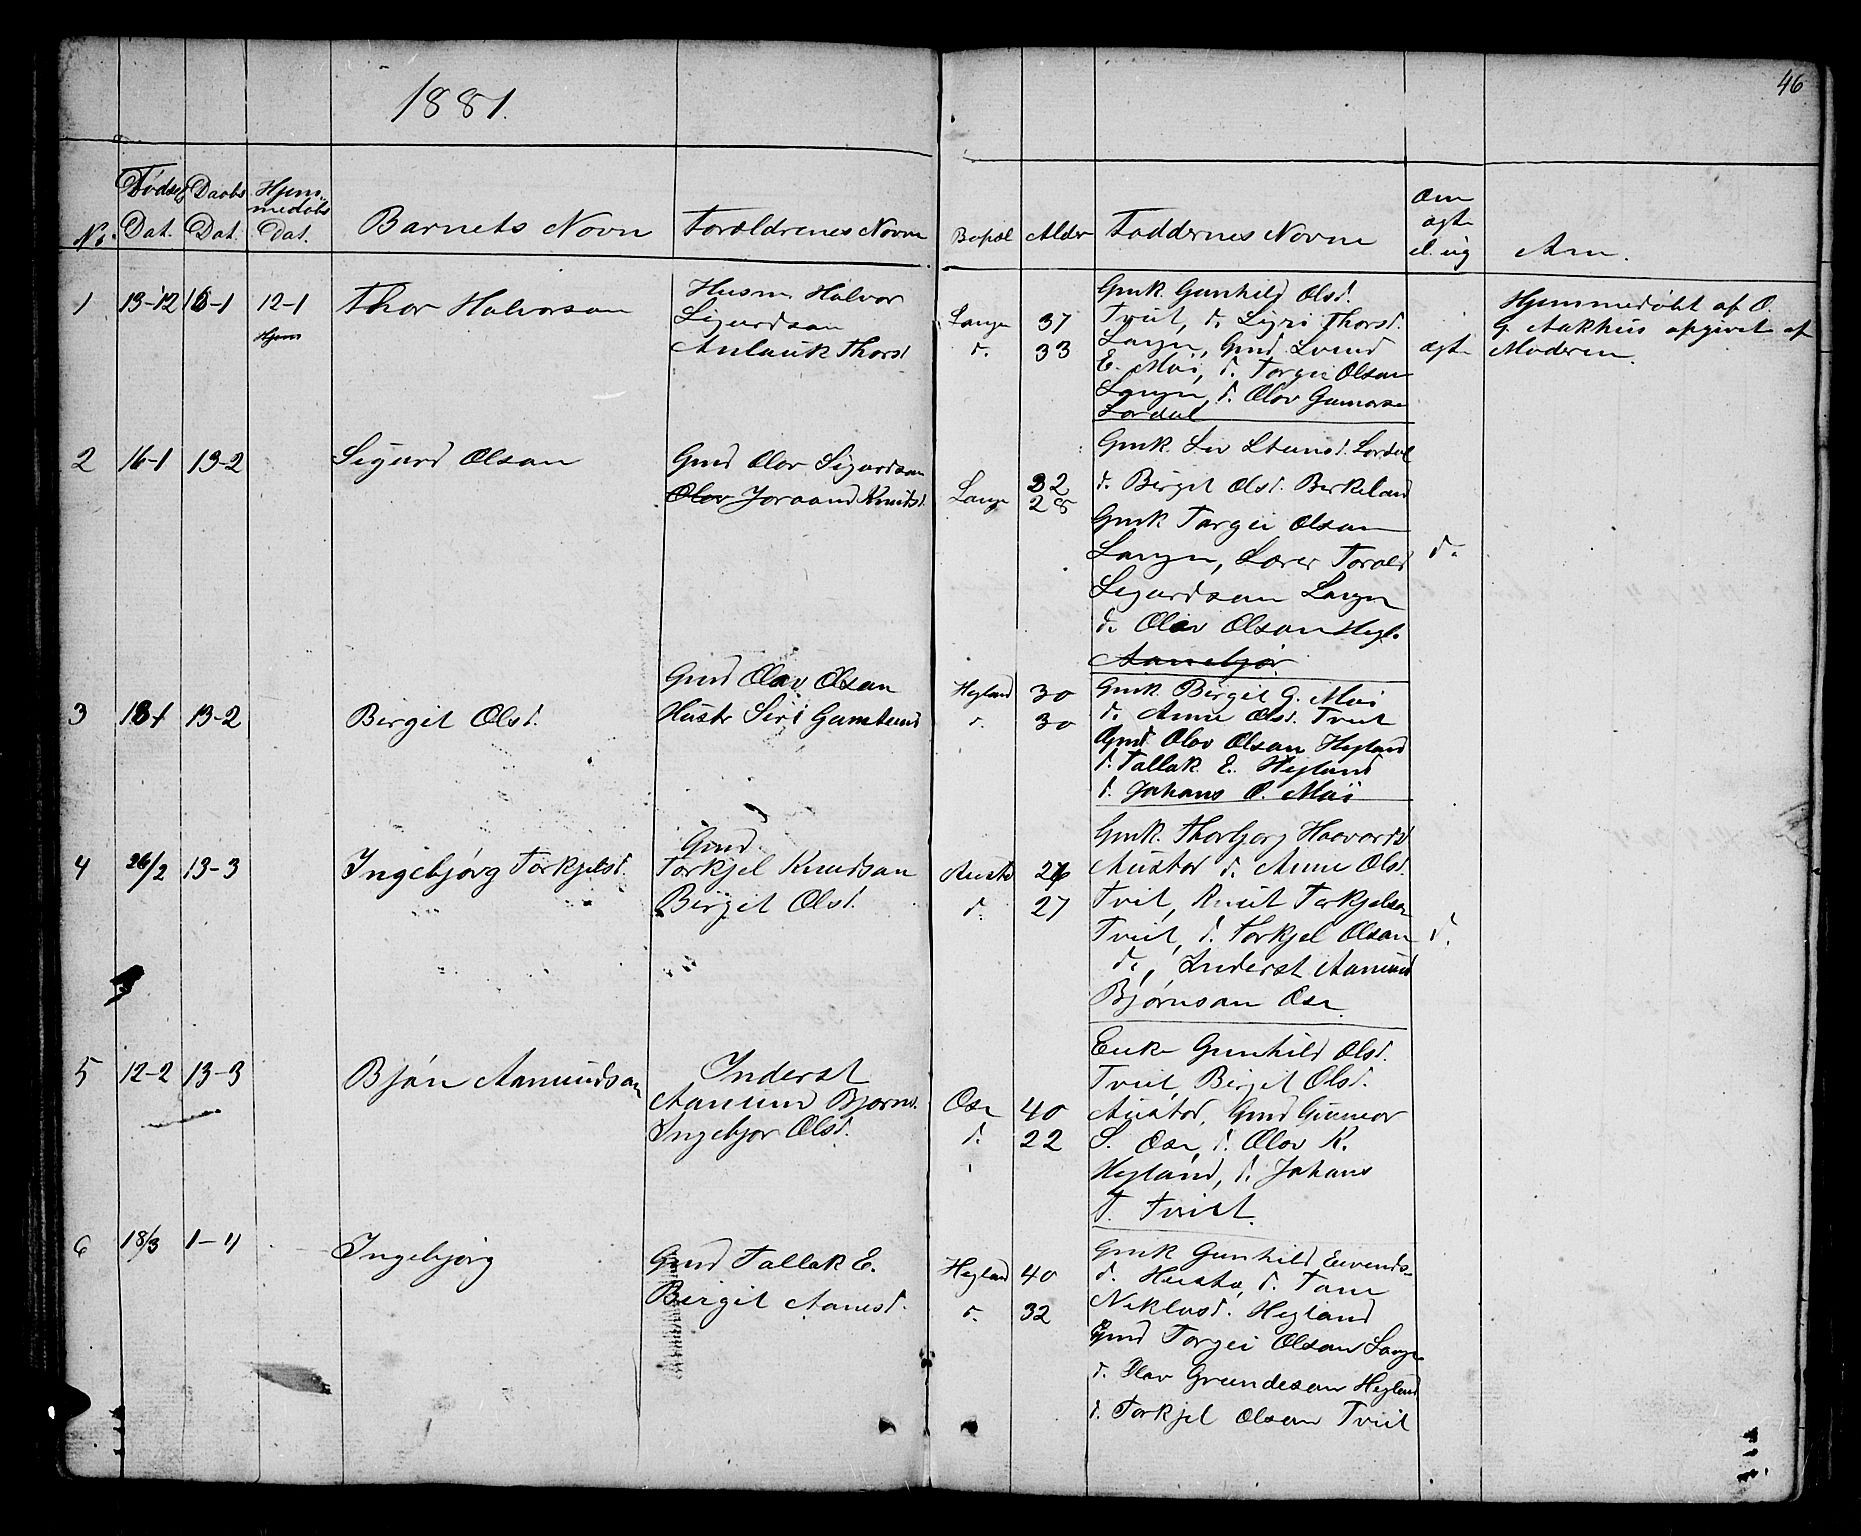 1881.
46
No.
Fødsels
Dat.
Daabs
Dat.
Hjem-
medøbs
Dat.
Barnets Navn
Forældrenes Navne
Bopæl
Alder
Faddernes Navne
Om
ægte
el. uæg
Am.
1
13-12
16-1
12-1
Hjem
Thor Halvorson
Husm. Halvor
Sigurdson
Anlauk Thorsd
Langei
d.
37
33
Gmk. Gunhild Olsd.
Tveit, d. Sigri Thorsd.
Langei, Gmd Svend
E. Moi, d. Torgei Olson
Langei, d. Olov Gunnarson
Lordal
ægte
Hjemmedøbt af O.
G. Aakhus opgivet af
Moderen.
2
16-1
13-2
Sigurd Olson
Gmd Olov Sigurdson
Olov Joraand Knutsd.
Langei
32
28
Gmk. Liv Steinsd. Lordal
d. Birgit Olsd. Birkeland
Gmk Targei Olson
Langei, Lærer Torald
Sigurdson Langei
d. Olov Olson Hegl.
Aamebjør
d.
3
18-1
13-2
Birgit Olsd.
Gmd Olav Olson
Hustr Siri Gamlund
Hegland
d.
30
30
Gmk. Birgit G. Moi
d. Anne Olsd. Tveit
Gmd. Olov Olson Hegland
d. Tallak E. Hegland
d. Johans O. Moi
4
26/2
13-3
Ingebjørg Torkjelsd.
Gmd.
Torkjel Knudson
Birgit Olsd.
Austad
d.
26
27
Gmk. Thorbjørg Haavardsd
Austad d. Anne Olsd.
Tveit, Knut Torkjelson
Tveit, d. Torkjel Olson
d., Inderst Aamund
Bjørnson Ose.
d.
5
12-2
13-3
Bjøn Aamundson
Inderst
Aamund Bjørns.
Ingebjør Olsd.
Ose
d.
40
22
Enke Gunhild Olsd.
Tveit, Birgit Olsd.
Austad, Gmd Gunnar
S. Ose, d. Olov K.
Hegland, d. Johans
T. Tveit.
6
18/3
1-4
Ingebjørg
Gmd Tallak E.
Birgit Aanesd.
Hegland
d.
40
32
Gmk Gunhild Eivends-
d. Husta, d. Tone
Niklosd. Hegland
Gmd Torgei Olson Langei
d. Olav Grundeson Hegland
d. Torkjel Olson Tveit